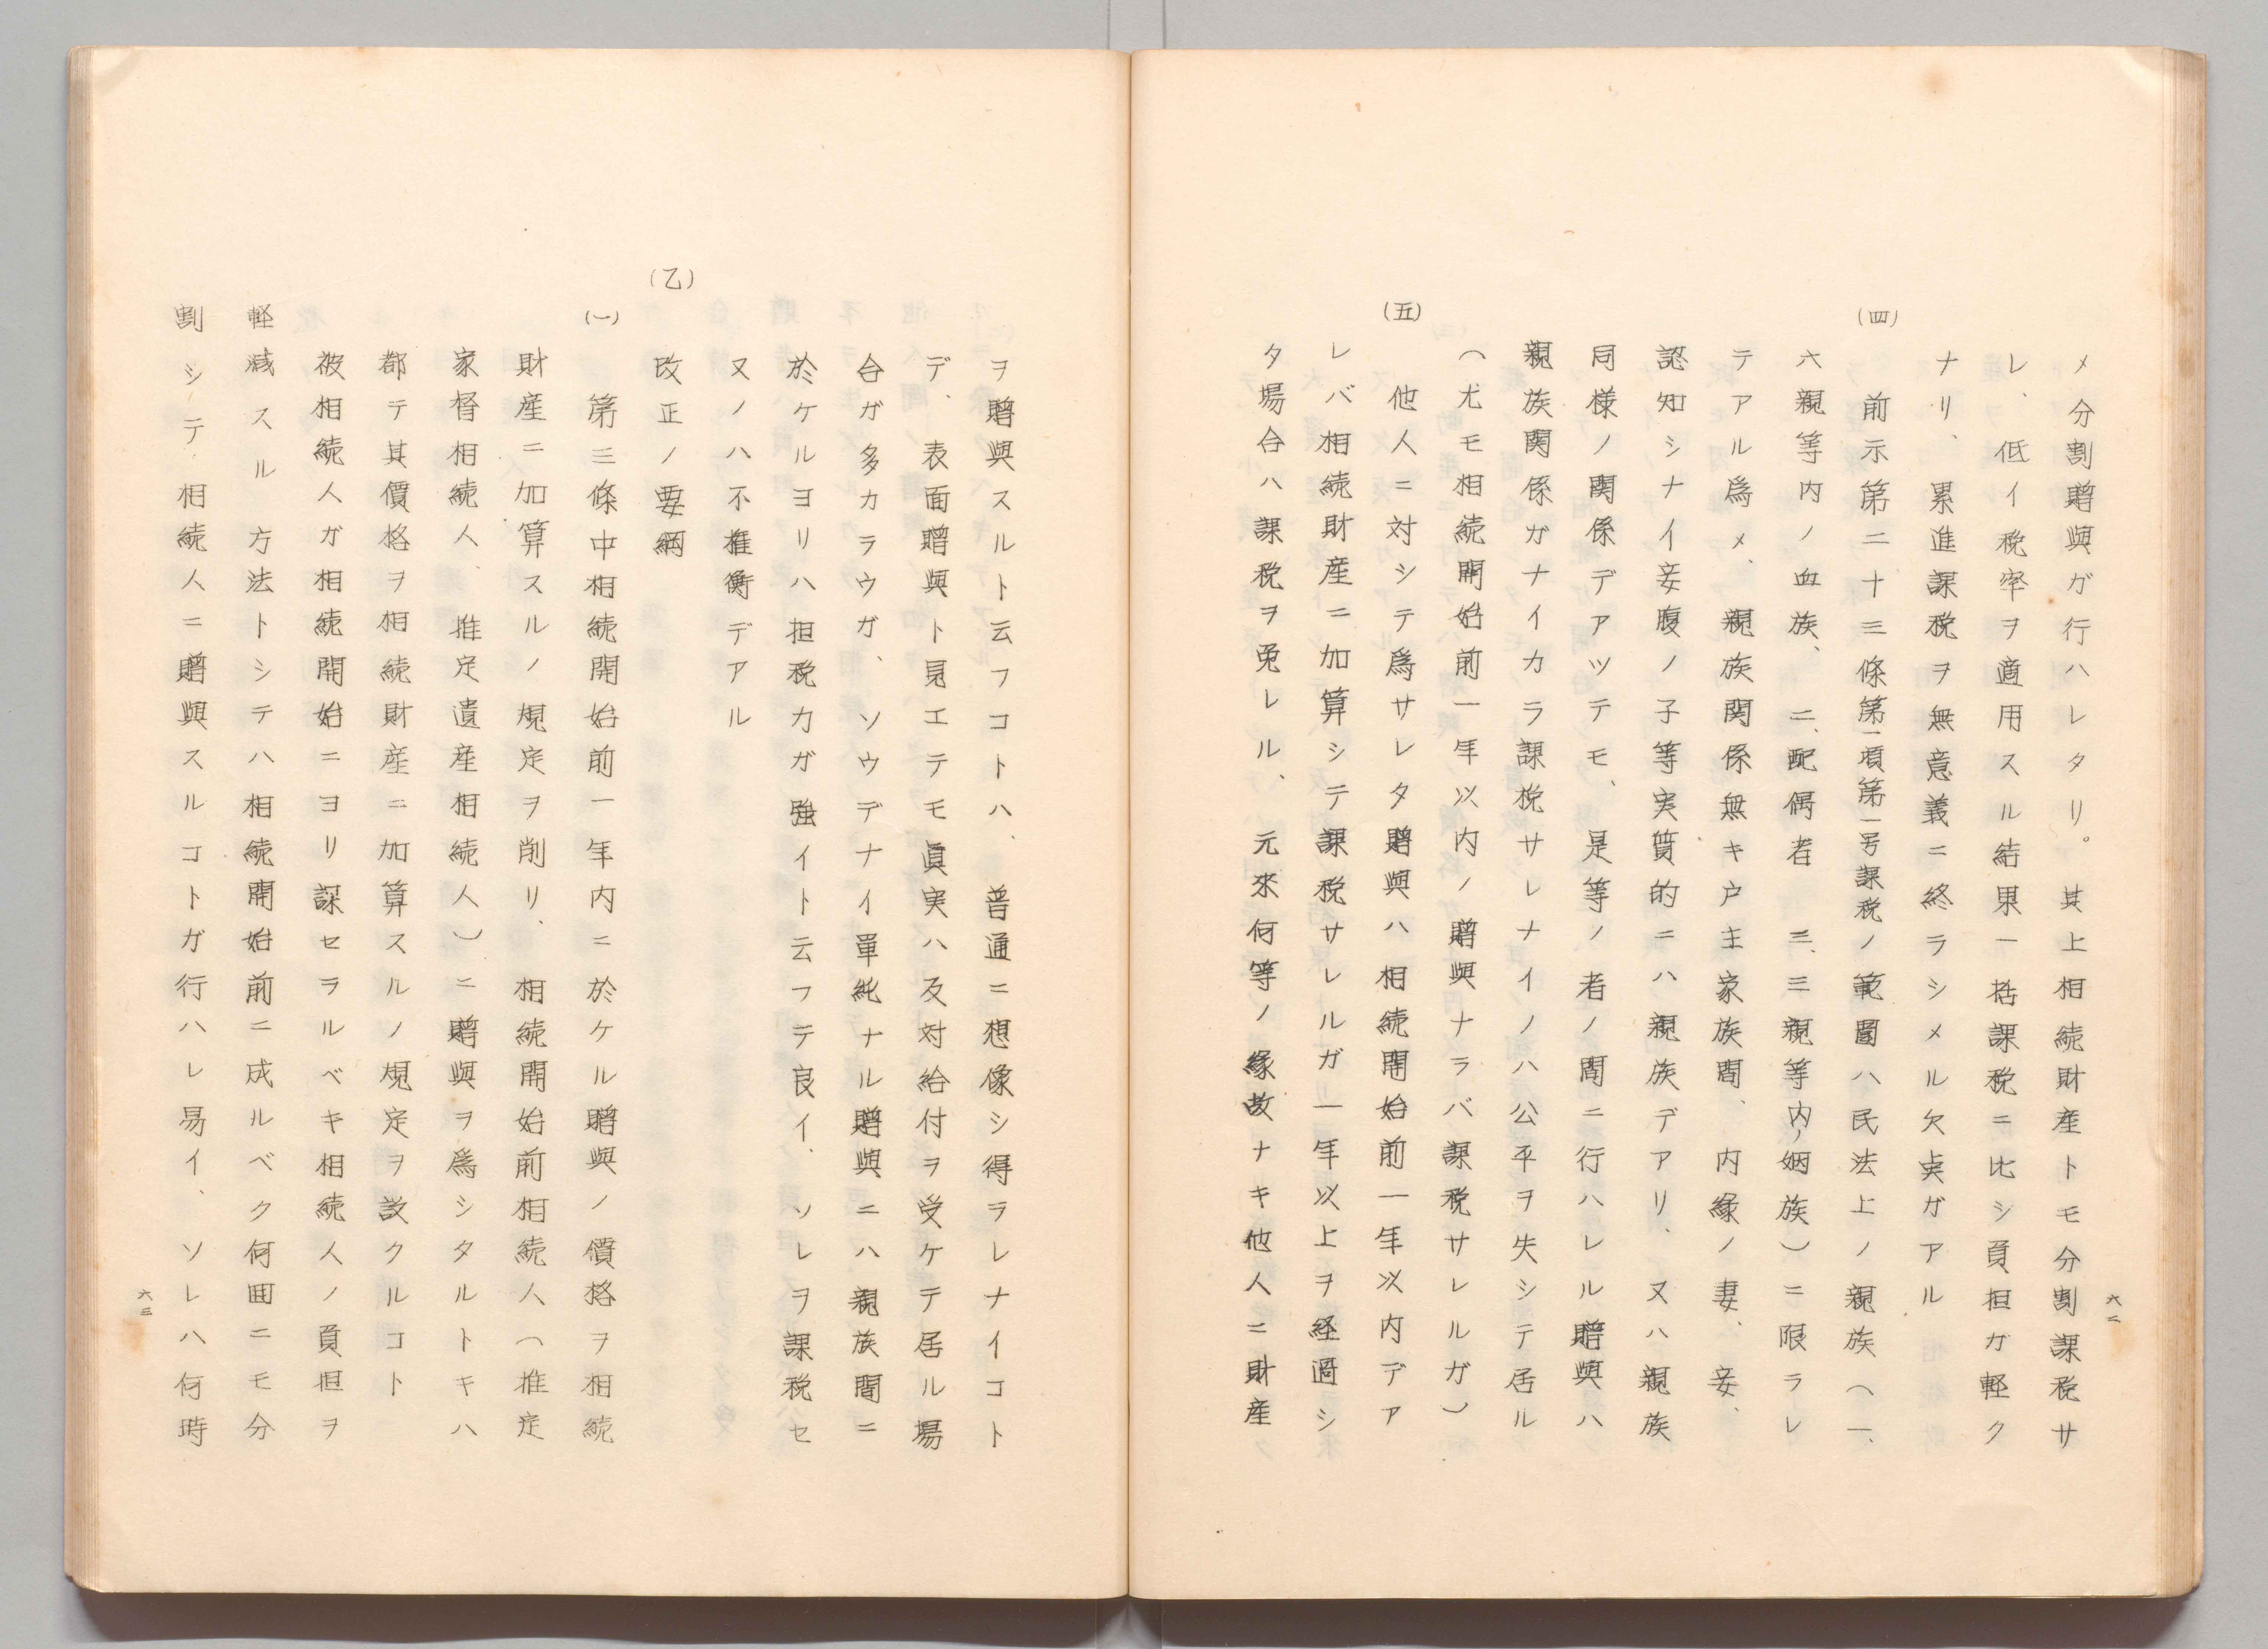 メ分割贈與ガ行ハレタリ。其上相続財産トモ分割課税サ
レ、低イ税率ヲ適用スル結果一括課税ニ比シ負担ガ軽ク
ナリ、累進課税ヲ無意義ニ終ラシメル欠点ガアル
(四)
前示第二十三條第一項第一号課税ノ範圍ハ民法上ノ親族(一、
六親等内ノ血族、二、配偶者 三、三親等内ノ姻族)ニ限ラレ
テアル爲メ、親族関係無キ戸主家族間、内縁ノ妻、妾、
認知シナイ妾腹ノ子等実質的ニハ親族デアリ、又ハ親族
同様ノ関係デアツテモ、是等ノ者ノ間ニ行ハレル贈與ハ
親族関係ガナイカラ課税サレナイノハ公平ヲ失シテ居ル
(尤モ相続開始前一年以内ノ贈與ナラバ課税サレルガ)
(五)
他人ニ対シテ爲サレタ贈與ハ相続開始前一年以内デア
レバ相続財産ニ加算シテ課税サレルガ一年以上ヲ経過シ
タ場合ハ課税ヲ免レル、元來何等ノ縁故ナキ他人ニ財産
六二
ヲ贈與スルト云フコトハ、普通ニ想像シ得ラレナイコト
デ、表面贈與ト見エテモ眞実ハ反対給付ヲ受ケテ居ル場
合ガ多カラウガ、ソウデナイ單純ナル贈與ニハ親族間ニ
於ケルヨリハ担税力ガ強イト云フテ良イ、ソレヲ課税セ
ヌノハ不権衡デアル
(乙)
改正ノ要綱
(一)
第三條中相続開始前一年内ニ於ケル贈與ノ價格ヲ相続
財産ニ加算スルノ規定ヲ削リ、相続開始前相続人(推定
家督相続人、推定遺産相続人)ニ贈與ヲ爲シタルトキハ
都テ其價格ヲ相続財産ニ加算スルノ規定ヲ設クルコト
被相続人ガ相続開始ニヨリ課セラルベキ相続人ノ負担ヲ
軽減スル方法トシテハ相続開始前ニ成ルベク何囬ニモ分
割シテ相続人ニ贈與スルコトガ行ハレ易イ、ソレハ何時
六三